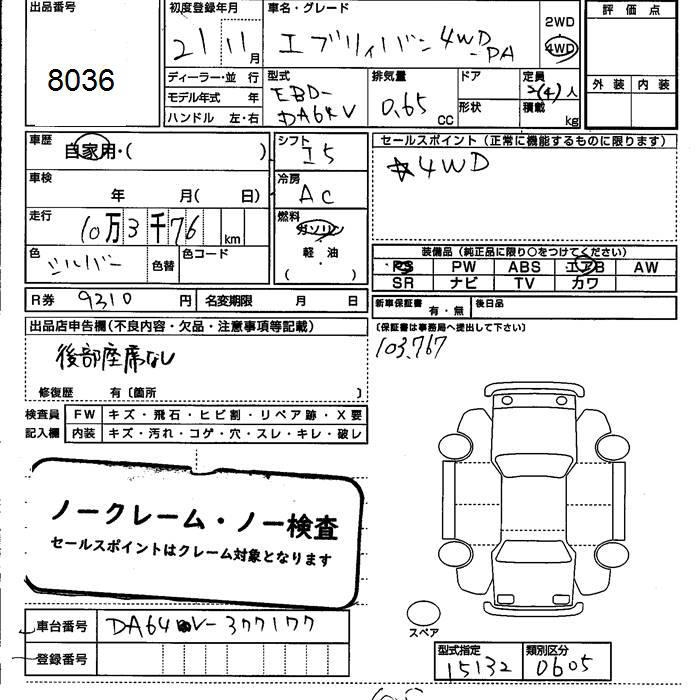 出品番号
8036
初度登録年月
21 11月
車名・グレード
エブリィバン 4WD -PA
2WD
4WD
評価点
外装 内装
ディーラー・並 行
モデル年式 年
ハンドル 左・右
型式
EBD-
DA64V
排気量
0.65 CC
ドア
形状
定員
2(4)人
積載
kg
車歴
自家用・( )
シフト
I5
セールスポイント(正常に機能するものに限ります)
☆4WD
車検
年 月( 日)
冷房
AC
走行
10万3千76 km
燃料
ガソリン
軽・油
( ・ )
色
シルバー
色替
色コード
装備品(純正品に限り○をつけてください)
PS PW ABS エアB AW
SR ナビ TV カワ
R券 9310 円 名変期限 月 日
新車保証書 有・無 後日品
(保証書は事務局へ提出して下さい)
103,767
出品店申告欄(不良内容・欠品・注意事項等記載)
後部座席なし
修復歴 有〔箇所 〕
検査員 FW キズ・飛石・ヒビ割・リペア跡・X要
記入欄 内装 キズ・汚れ・コゲ・穴・スレ・キレ・破レ
ノークレーム・ノー検査
セールスポイントはクレーム対象となります
スペア
車台番号 DA64V-377177
登録番号
型式指定 類別区分
15132 0605